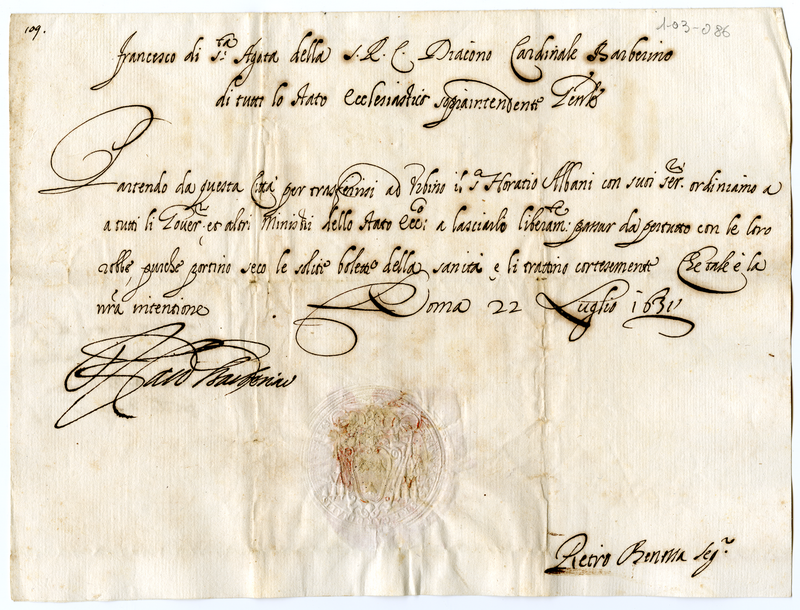 109.
1-03-086
Francesco di S.ta Agata della S.R.C. Diacono Cardinale Barberino
di tutto lo Stato Ecclesiastico
Partendo da questa Città per trasferirsi ad Urbino il s.r Horatio Albani con suoi ser.ri ordiniamo a
a tutti li Gover.ri et altri Ministri dello Stato Ecc.co: a lasciarlo liberam.te: passar da pertutto con le loro
robbe, purche portino seco le solite bolette della sanità e li trattino cortesemente Che tale è la
nrã intentione Roma 22 Luglio 1631
Barberino
Pietro Benessa Seg.r